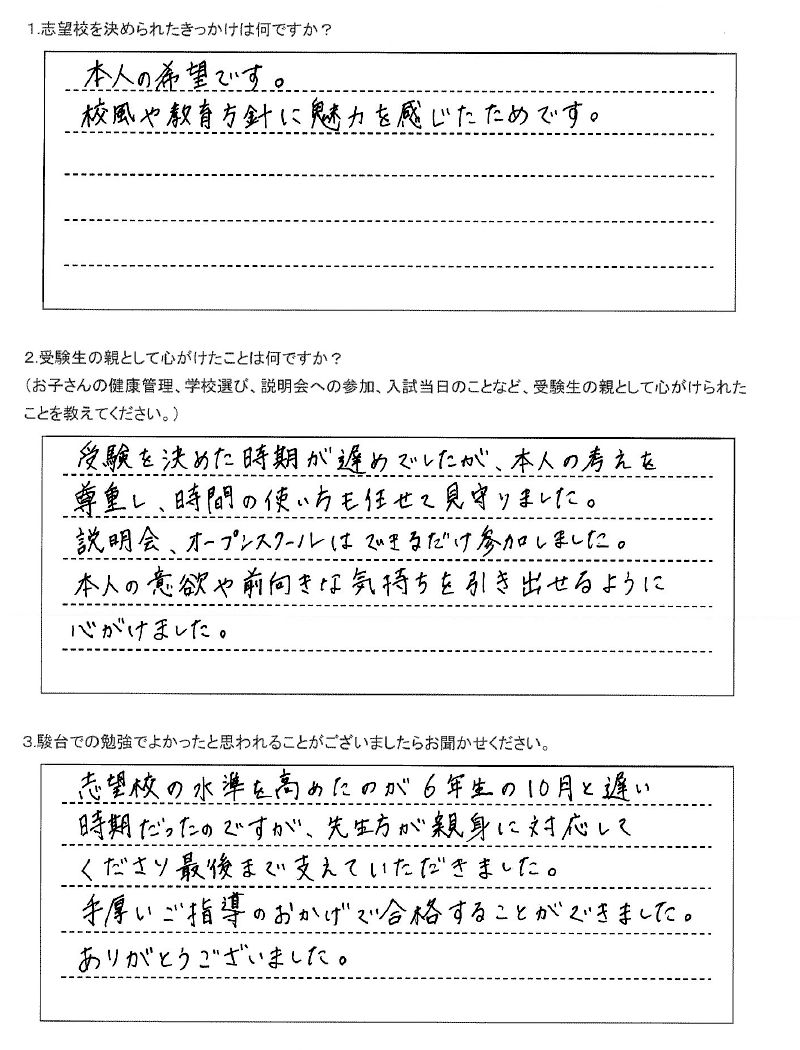 1.志望校を決められたきっかけは何ですか？
本人の希望です。
校風や教育方針に魅力を感じたためです。
2.受験生の親として心がけたことは何ですか？
（お子さんの健康管理、学校選び、説明会への参加、入試当日のことなど、受験生の親として心がけられた
ことを教えてください。）
受験を決めた時期が遅めでしたが、本人の考えを
尊重し、時間の使い方も任せて見守りました。
説明会、オープンスクールはできるだけ参加しました。
本人の意欲や前向きな気持ちを引き出せるように
心がけました。
3.駿台での勉強でよかったと思われることがございましたらお聞かせください。
志望校の水準を高めたのが6年生の10月と遅い
時期だったのですが、先生方が親身に対応して
くださり最後まで支えていただきました。
手厚いご指導のおかげで合格することができました。
ありがとうございました。